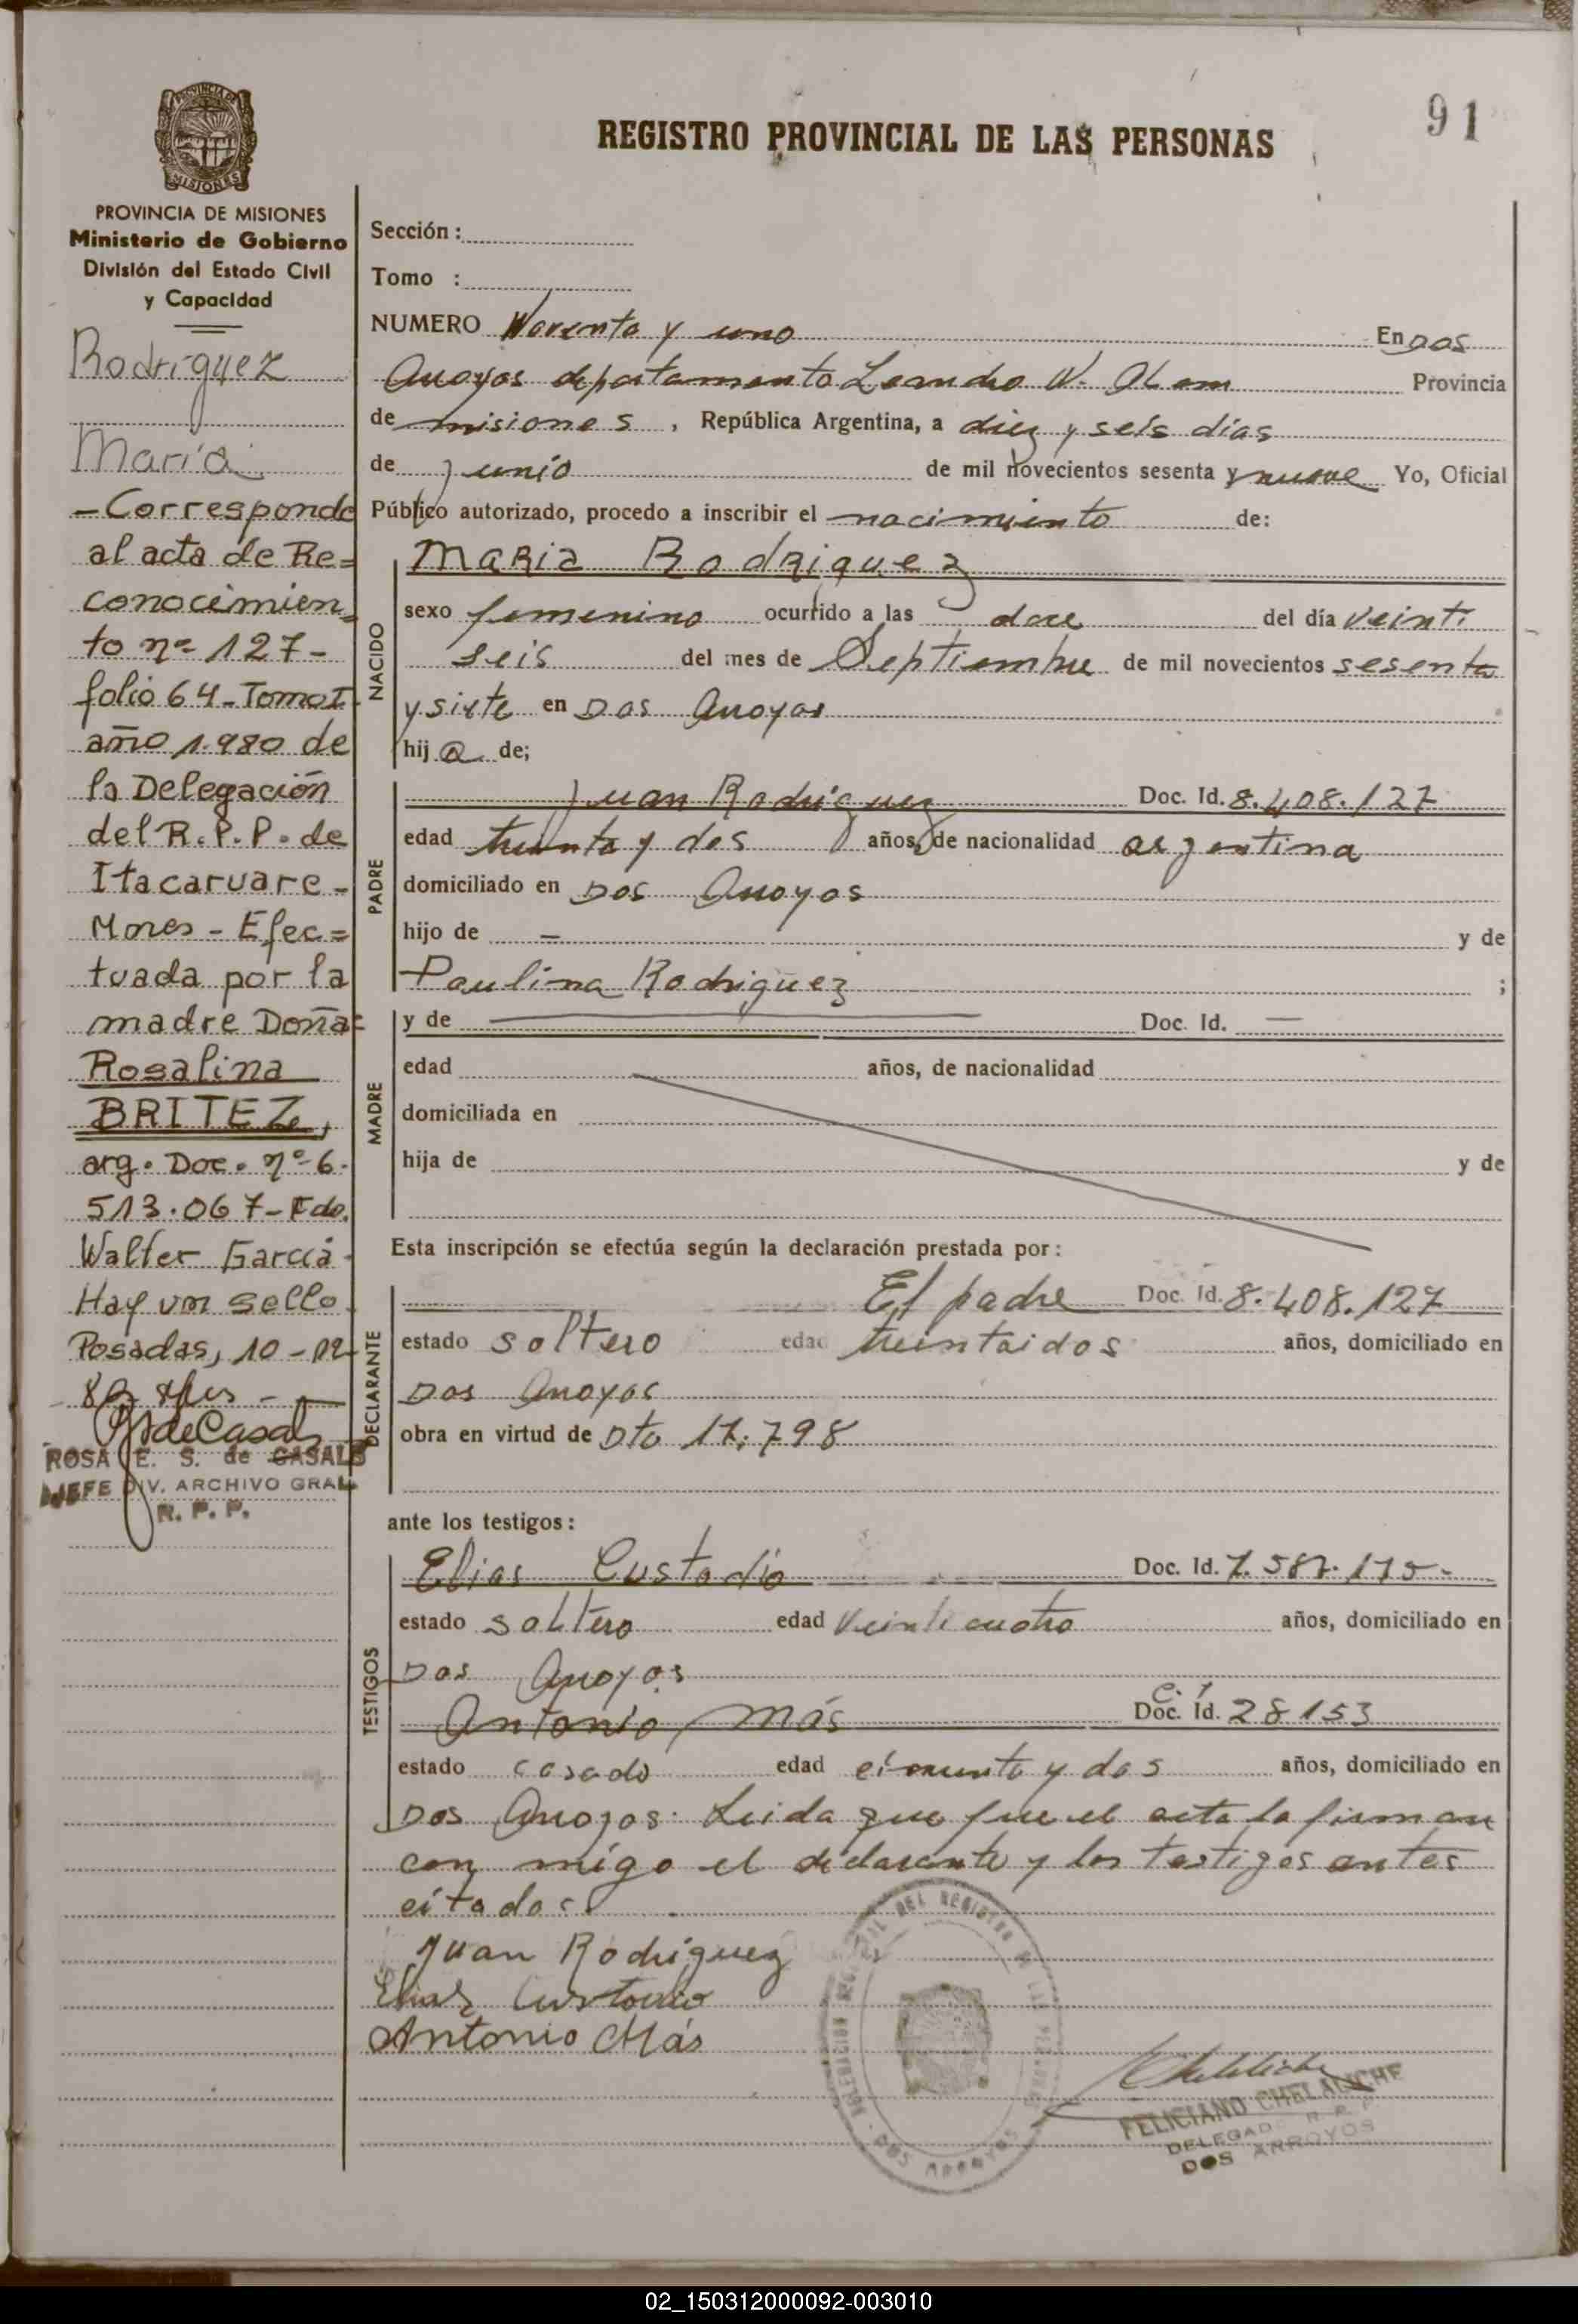 91
REGISTRO PROVINCIAL DE LAS PERSONAS
PROVINCIA DE MISIONES
Ministerio de Gobierno
División del Estado Civil
y Capacidad
Rodríguez
María
- Corresponde
al acta de Re=
conocimien=
to nº 127-
folio 64-Tomo I
año 1.980 de
la Delegación
del R.P.P. de
Itacaruare-
Mones - Efec=
tuada por la
madre Doña=
Rosalina
BRITEZ,
arg. Doc. nº 6.
513.067-Fdo.
Walter García
Hay un sello
Posadas, 10-12-
ROSA E. S. de CASALS
JEFE DIV. ARCHIVO GRAL
R. P. P.
Sección :
Tomo :
NUMERO Noventa y uno En Dos
Arroyos departamento Leandro N. Alem Provincia
de misiones, República Argentina, a diez y seis días
de junio de mil novecientos sesenta y nueve Yo, Oficial
Público autorizado, procedo a inscribir el nacimiento de:
NACIDO
Maria Rodriguez
sexo femenino ocurrido a las doce del día veinti
seis del mes de Septiembre de mil novecientos sesenta
y siete en Dos Arroyos
hij a de;
PADRE
Juan Rodriguez Doc. Id. 8.408.127
edad treinta y dos años, de nacionalidad argentina
domiciliado en Dos Arroyos
hijo de - y de
Paulina Rodriguez ;
MADRE
y de — Doc. Id. —
edad años, de nacionalidad
domiciliada en
hija de y de
Esta inscripción se efectúa según la declaración prestada por:
DECLARANTE
El padre Doc. Id. 8.408.127
estado soltero edad treintaidos años, domiciliado en
Dos Arroyos
obra en virtud de Dto 17.798
ante los testigos:
TESTIGOS
Elias Custodio Doc. Id. 7.587.175-
estado soltero edad veinticuatro años, domiciliado en
Dos Arroyos
C. I
Antonio Más Doc. Id. 28153
estado casado edad cincuenta y dos años, domiciliado en
Dos Arroyos. Leida que fue el acta la firman
con migo el declarante y los testigos antes
citados
Juan Rodriguez
Elias Custodio
Antonio Más
DOS ARROYOS
FELICIANO CHELALICHE
DELEGADO R. R. P.
DOS ARROYOS
02_150312000092-003010